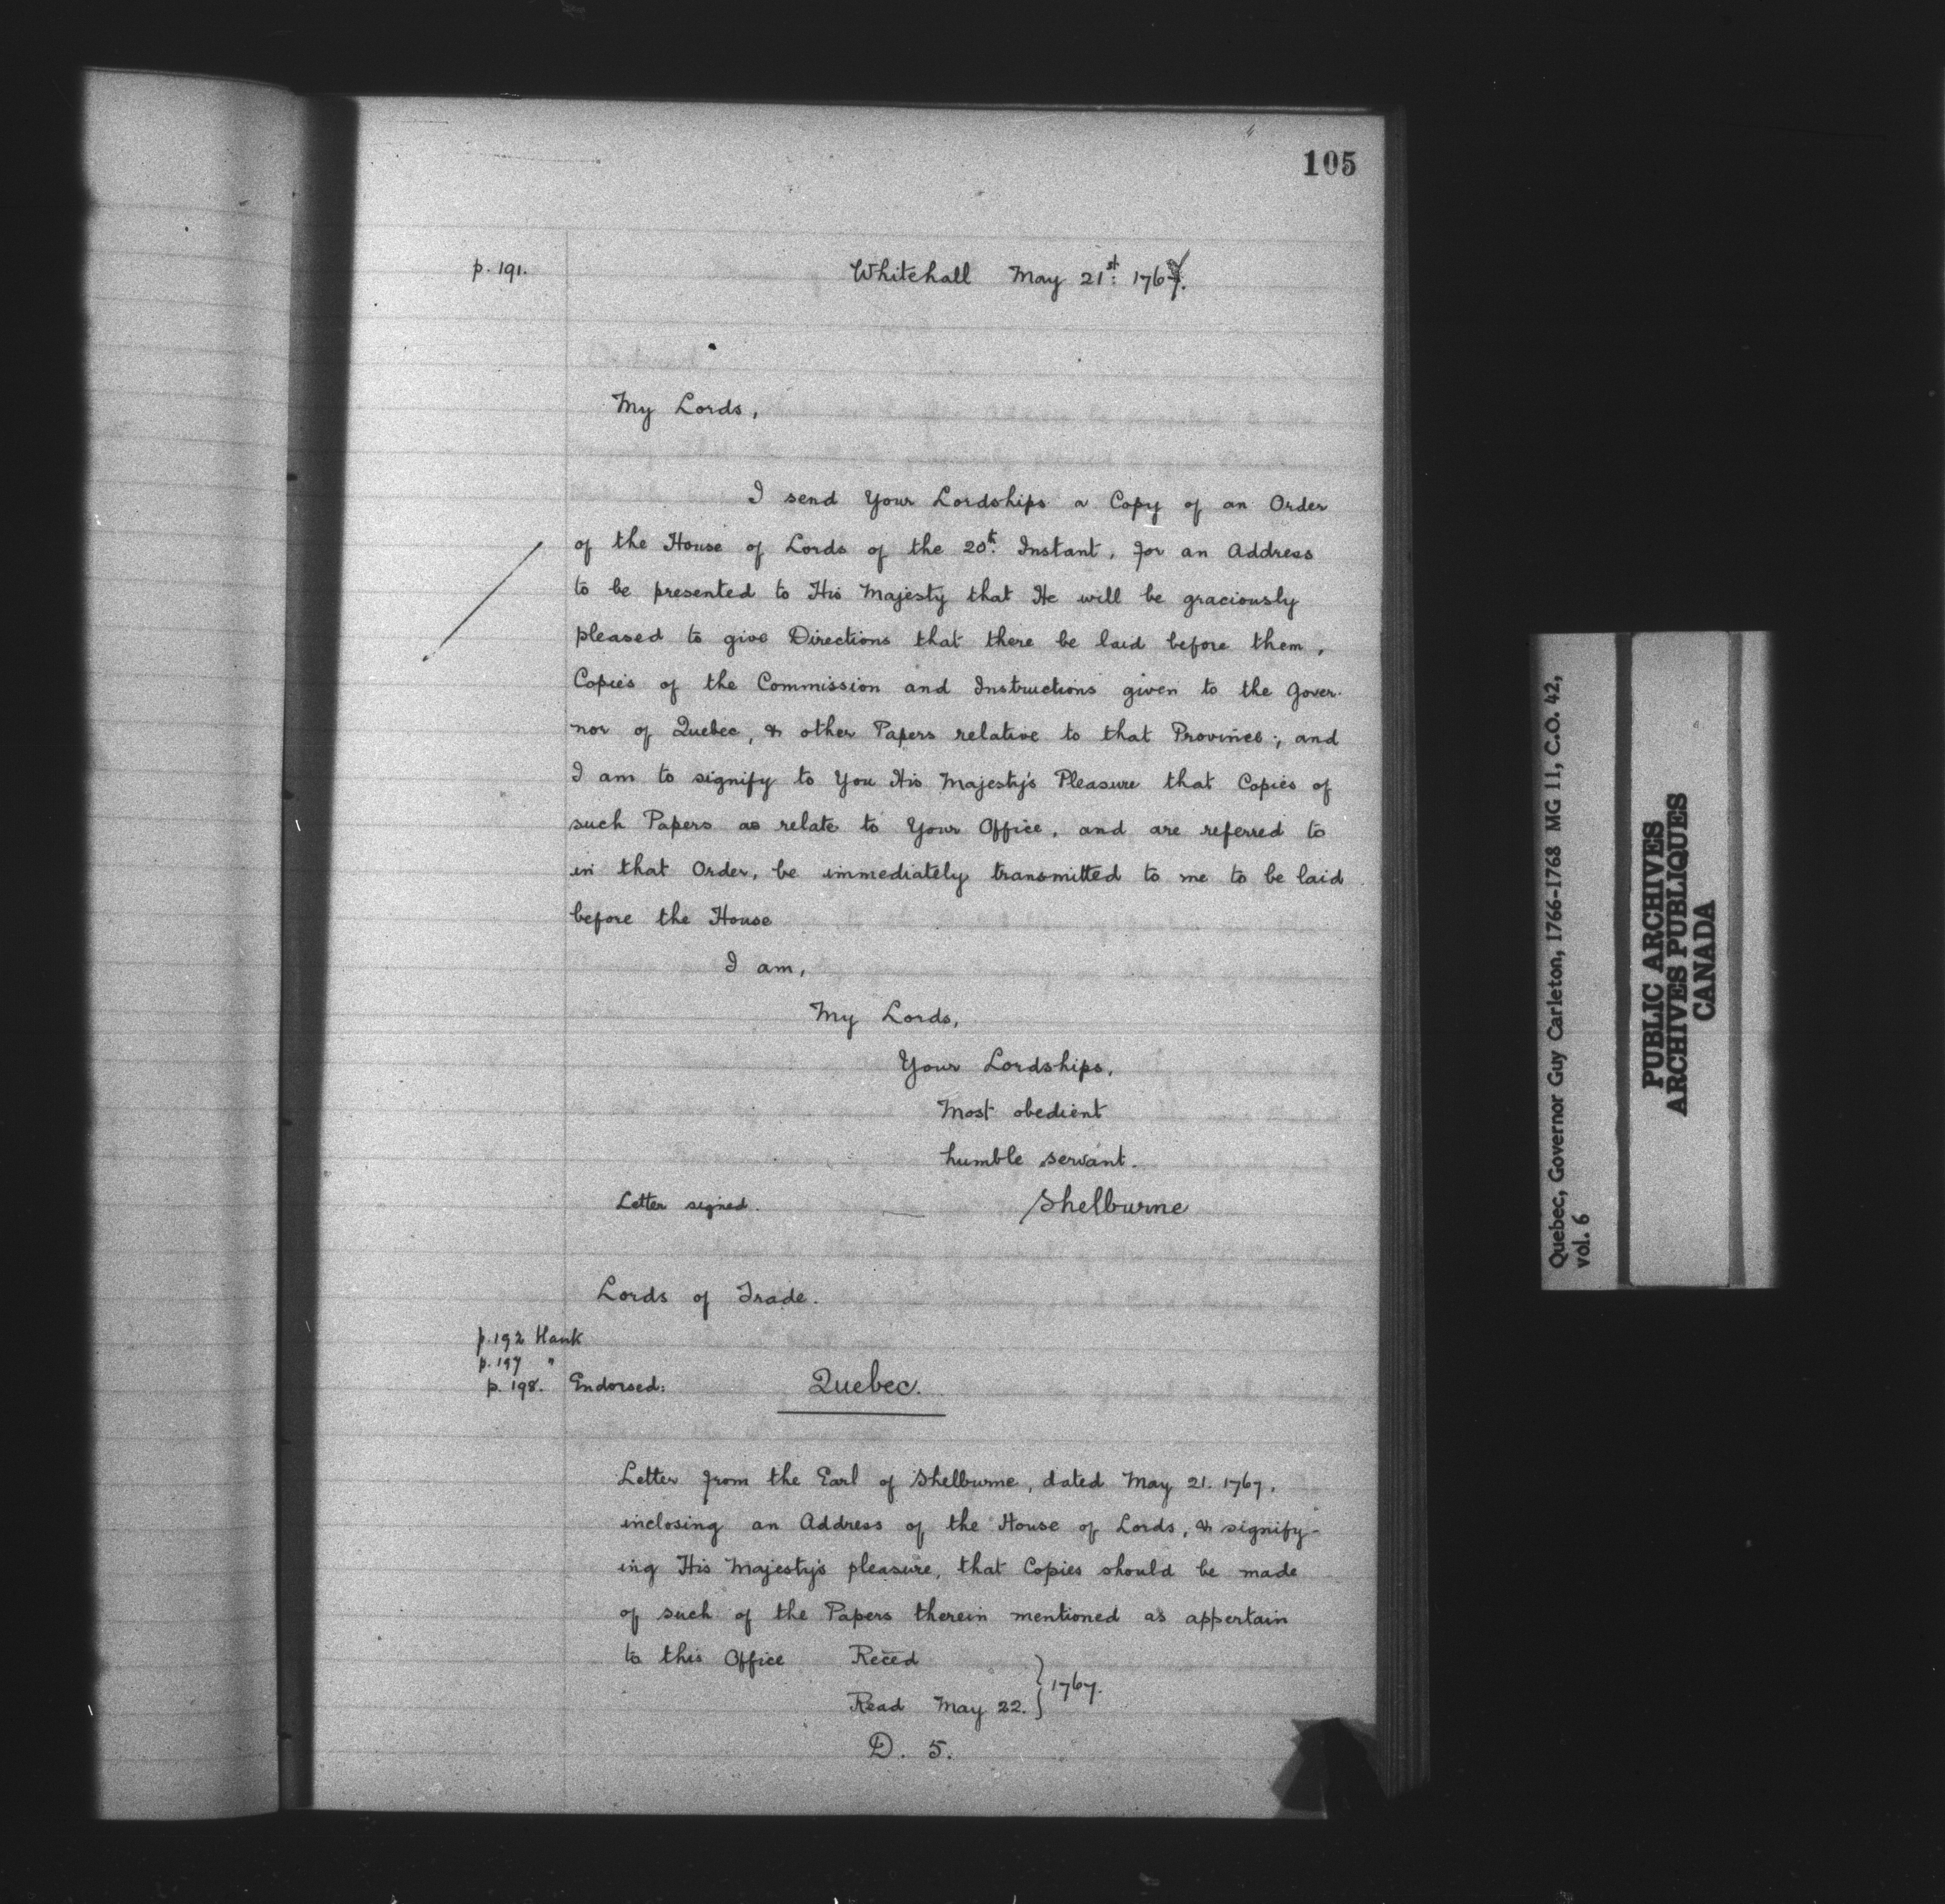 105
p. 191.
Whitehall May 21st: 1767.
My Lords,
I send Your Lordships a Copy of an Order
of the House of Lords of the 20th. Instant, for an Address
to be presented to His Majesty that He will be graciously
pleased to give Directions that there be laid before them,
Copies of the Commission and Instructions given to the Gover-
nor of Quebec, & other Papers relative to that Province; and
I am to signify to You His Majesty's Pleasure that Copies of
such Papers as relate to Your Office, and are referred to
in that Order, be immediately transmitted to me to be laid
before the House
I am,
My Lords,
Your Lordships,
Most obedient
humble servant.
Letter signed. — Shelburne
Lords of Trade.
p. 192 Hank
p. 197 "
p. 198. Endorsed: Quebec.
Letter from the Earl of Shelburne, dated May 21. 1767,
inclosing an Address of the House of Lords, & signify-
ing His Majesty's pleasure, that Copies should be made
of such of the Papers therein mentioned as appertain
to this Office Reced
Read May 22. } 1767.
D. 5.
Quebec, Governor Guy Carleton, 1766-1768 MG 11, C.O. 42,
vol. 6
PUBLIC ARCHIVES
ARCHIVES PUBLIQUES
CANADA